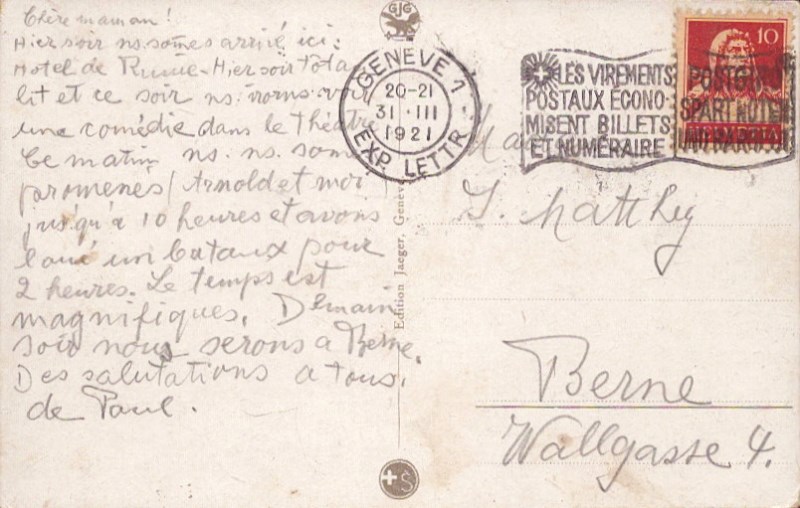 Chère maman!
Hier soir ns. somes arrivé ici:
Hotel de Russie - Hier soir Tota-
lit et ce soir ns. irons voir
une comédie dans le Théâtre
Ce matin ns. ns. som
promenés (Arnold et moi
jusqu'à 10 heures et avons
loué un bataux pour
2 heures. Le temps est
magnifiques. Demain
soir nous serons a Berne.
Des salutations a tous.
de Paul.
GJG
Edition Jaeger, Genève
+S
GENÈVE 1
20-21
31 ·III
1921
EXP. LETTR.
LES VIREMENTS
POSTAUX ÉCONO-
MISENT BILLETS
ET NUMÉRAIRE
10
POSTGIRO
SPART NOTEN
UND BARSCHAFT
J. Matthey
Berne
Wallgasse 4.